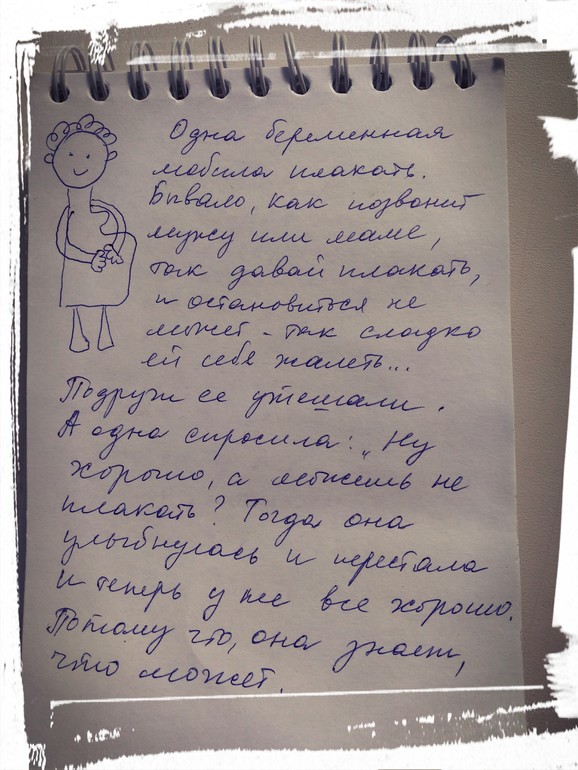 Одна беременная
любила плакать.
Бывало, как позвонит
мужу или маме,
так давай плакать,
и остановиться не
может - так сладко
ей себя жалеть...
Подруги ее утешали.
А одна спросила: „Ну
хорошо, а можешь не
плакать? Тогда она
улыбнулась и перестала
и теперь у нее все хорошо.
Потому что, она знает,
что может.